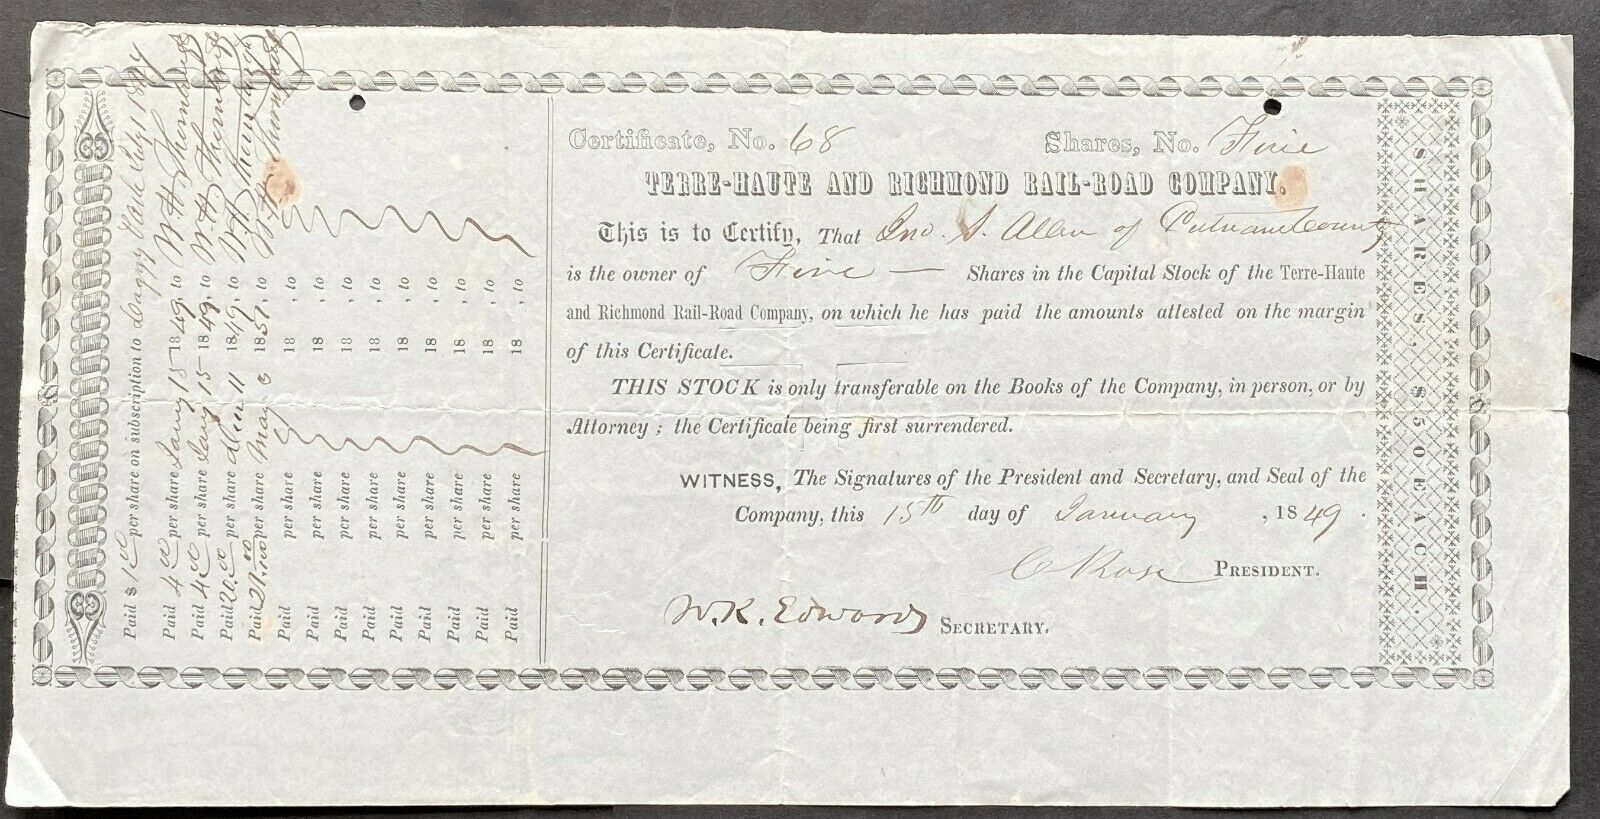 Certificate, No. 68 Shares, No. Five
TERRE-HAUTE AND RICHMOND RAIL-ROAD COMPANY.
This is to Certify, That Jno. S. Allen of Putnam County
is the owner of Five — Shares in the Capital Stock of the Terre-Haute
and Richmond Rail-Road Company, on which he has paid the amounts attested on the margin
of this Certificate.
THIS STOCK is only transferable on the Books of the Company, in person, or by
Attorney; the Certificate being first surrendered.
WITNESS, The Signatures of the President and Secretary, and Seal of the
Company, this 15th day of January, 1849.
C Rose PRESIDENT.
W. K. Edwards SECRETARY.
SHARES, $50 EACH.
Paid $ 1 00 per share on subscription to Daggy July 1
Paid 4 00 per share Jany 15 1849, to W H Thornburgh
Paid 4 00 per share Jany 15 1849, to W H Thornburgh
Paid 20.00 per share 11 1849, to W H Thornburgh
Paid 21.00 per share May 1851, to W H Thornburgh
Paid per share 18 , to
Paid per share 18 , to
Paid per share 18 , to
Paid per share 18 , to
Paid per share 18 , to
Paid per share 18 , to
Paid per share 18 , to
Paid per share 18 , to
Paid per share 18 , to